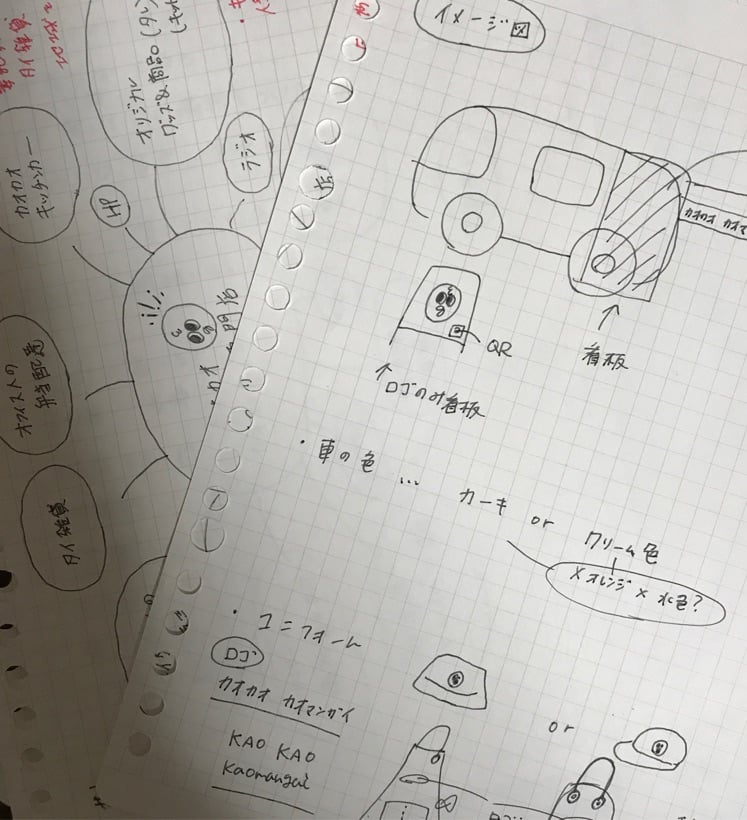 イメージ図
カオカオ カオマ
QR
看板
ロゴのみ看板
・車の色 … カーキ or クリーム色
×オレンジ×水色?
・ユニフォーム
ロゴ
カオカオ カオマンガイ
KAO KAO
Kaomangai
or
オリジナル
グッズ&商品。
ラジオ
HP
カオカオ
キッチンカー
オフィス人の
弁当配達
タイ雑貨
タイ雑貨